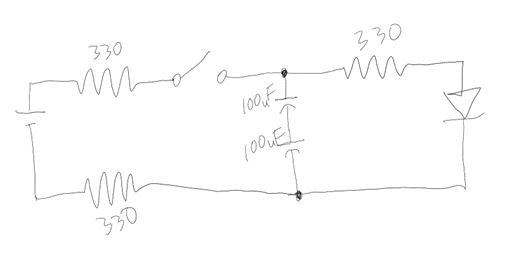 330
330
100uF
100uF
330